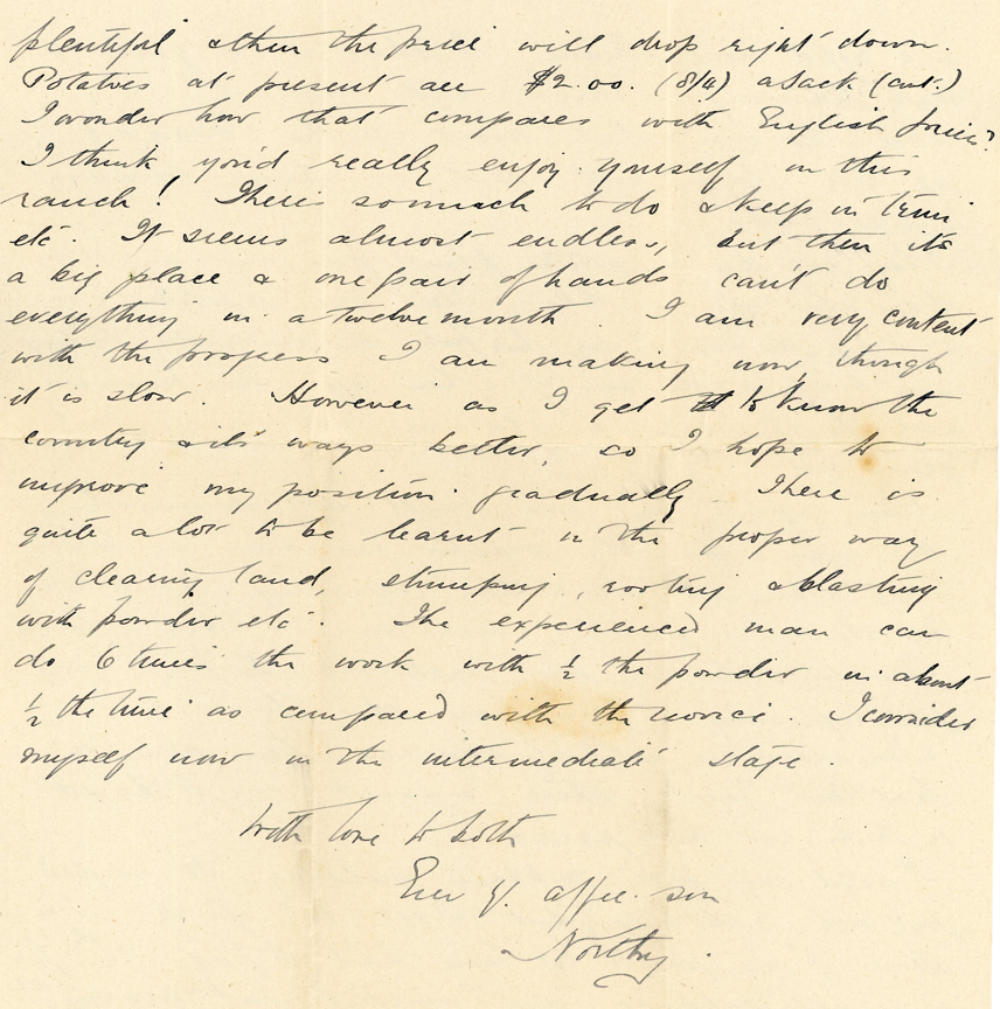 plentiful & then the price will drop right down.
Potatoes at present are $2.00. (8/4) a sack (cwt.)
I wonder how that compares with English prices?
I think you'd really enjoy yourself on this
ranch! There is so much to do & keep in trim
etc. It seems almost endless, but then it's
a big place & one pair of hands can't do
everything in a twelve month. I am very content
with the progress I am making now, though
it is slow. However as I get to know the
country & its ways better, so I hope to
improve my position gradually. There is
quite a lot to be learnt in the proper way
of clearing land, stumping, rooting & blasting
with powder etc. The experienced man can
do 6 times the work with ½ the powder in about
½ the time as compared with the novice. I consider
myself now in the intermediate stage.
With love to both
Ever y. affec. son